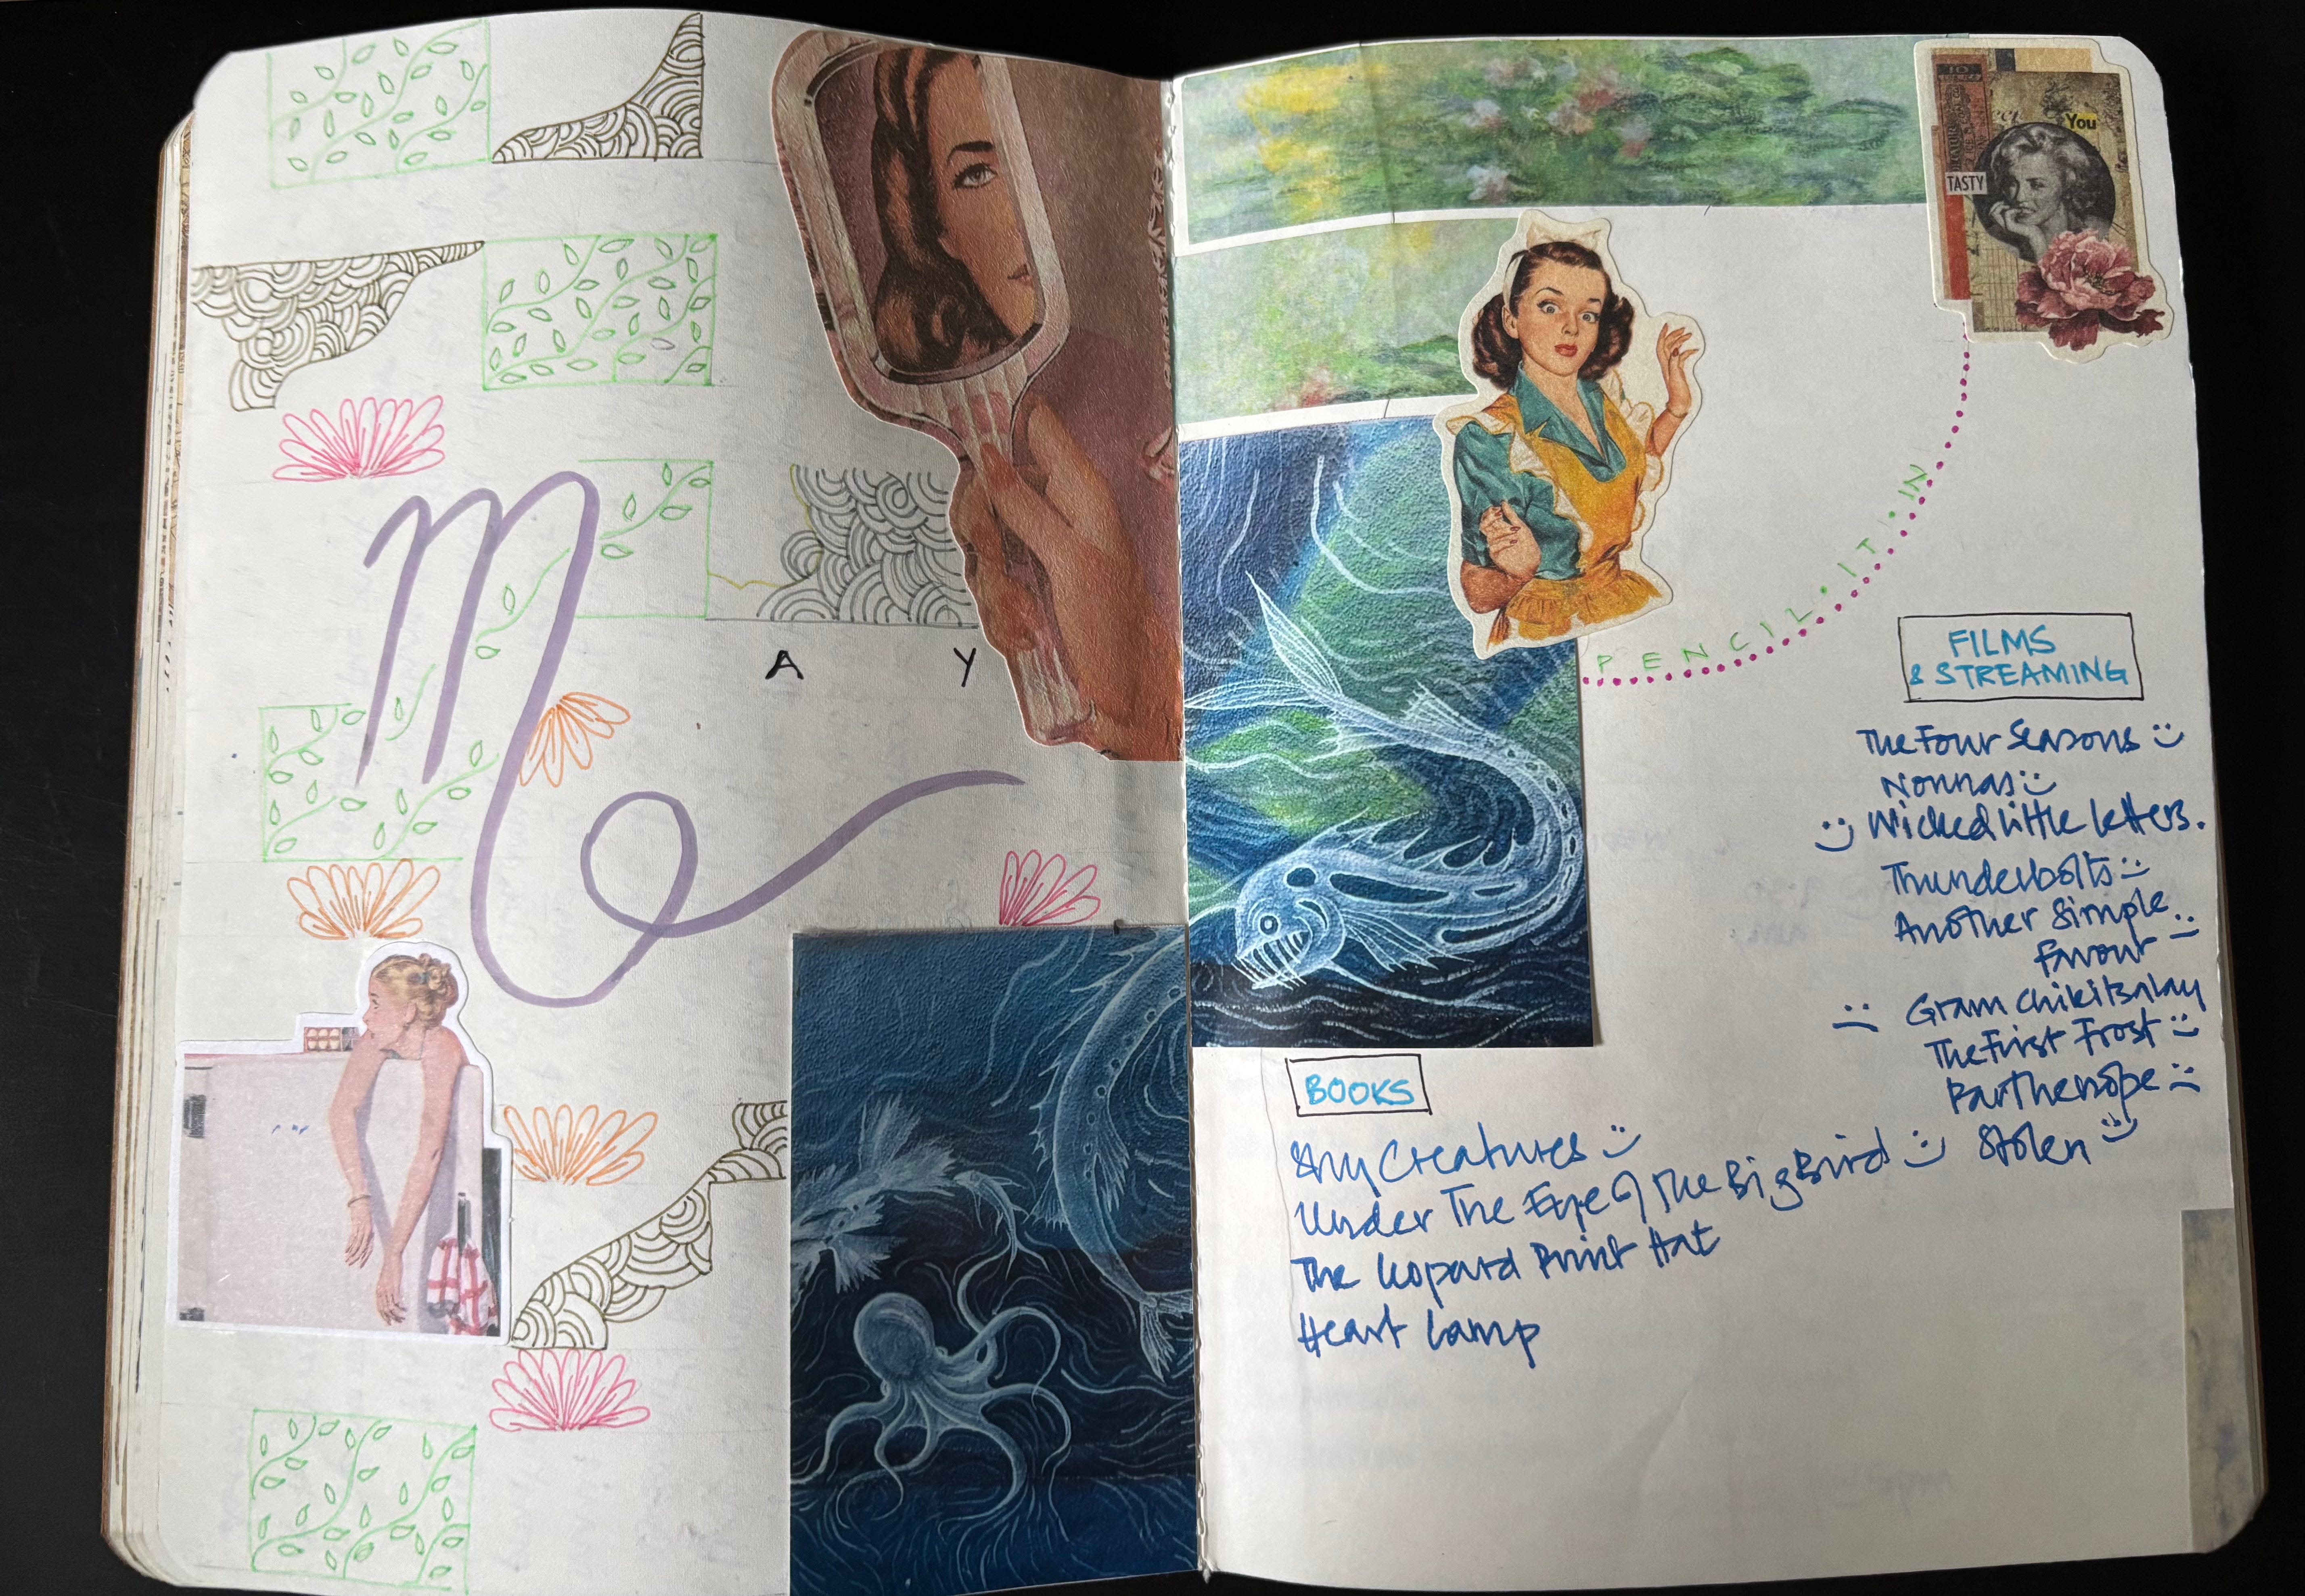 M A Y
You
TASTY
PENCIL · IT · IN
FILMS
& STREAMING
The Four Seasons :)
Nonnas :)
:) Wicked little letters.
Thunderbolts :)
Another Simple
Favour :)
:( Gram Chikitsalay
The First Frost :)
Parthenope :(
Stolen :)
BOOKS
Shy Creatures :)
Under The Eye of The Big Bird :)
The Leopard Print Hat
Heart Lamp